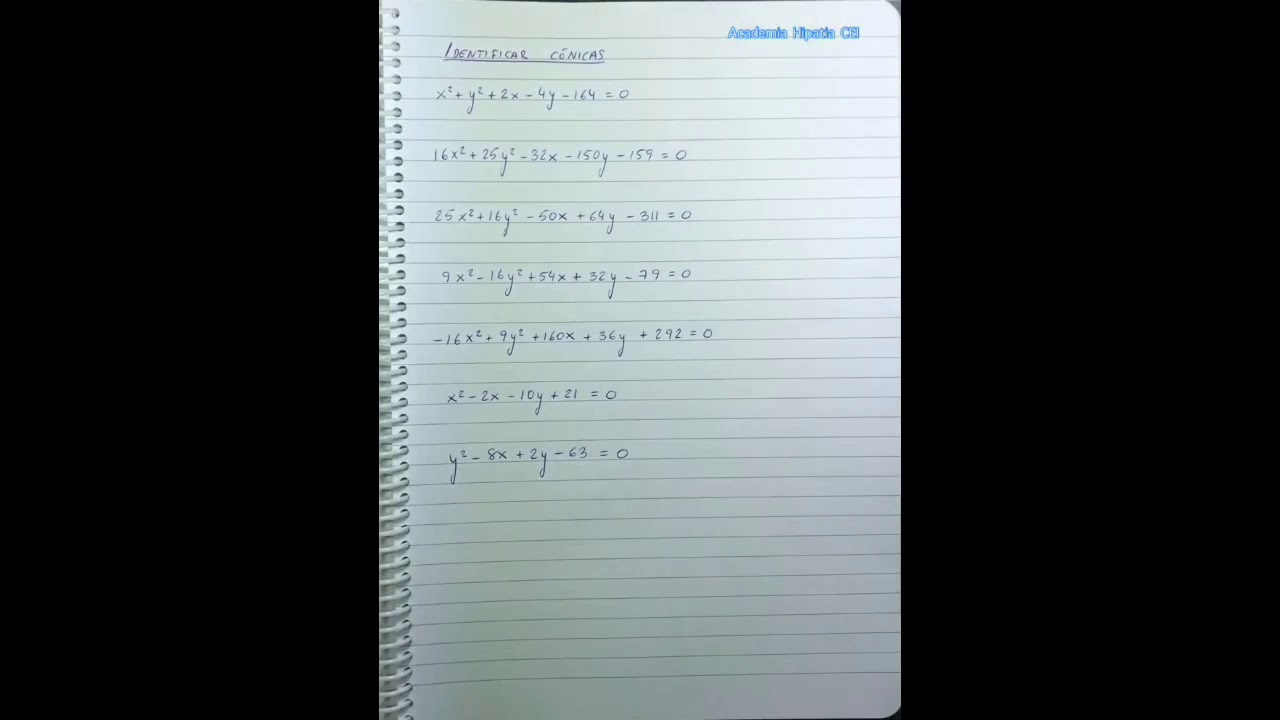 Academia Hipatia CEI
IDENTIFICAR CÓNICAS
x² + y² + 2x - 4y - 164 = 0
16x² + 25y² - 32x - 150y - 159 = 0
25x² + 16y² - 50x + 64y - 311 = 0
9x² - 16y² + 54x + 32y - 79 = 0
-16x² + 9y² + 160x + 36y + 292 = 0
x² - 2x - 10y + 21 = 0
y² - 8x + 2y - 63 = 0